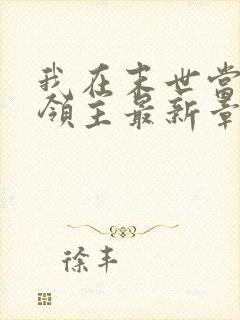 我在末世当
领主最新章
徐丰